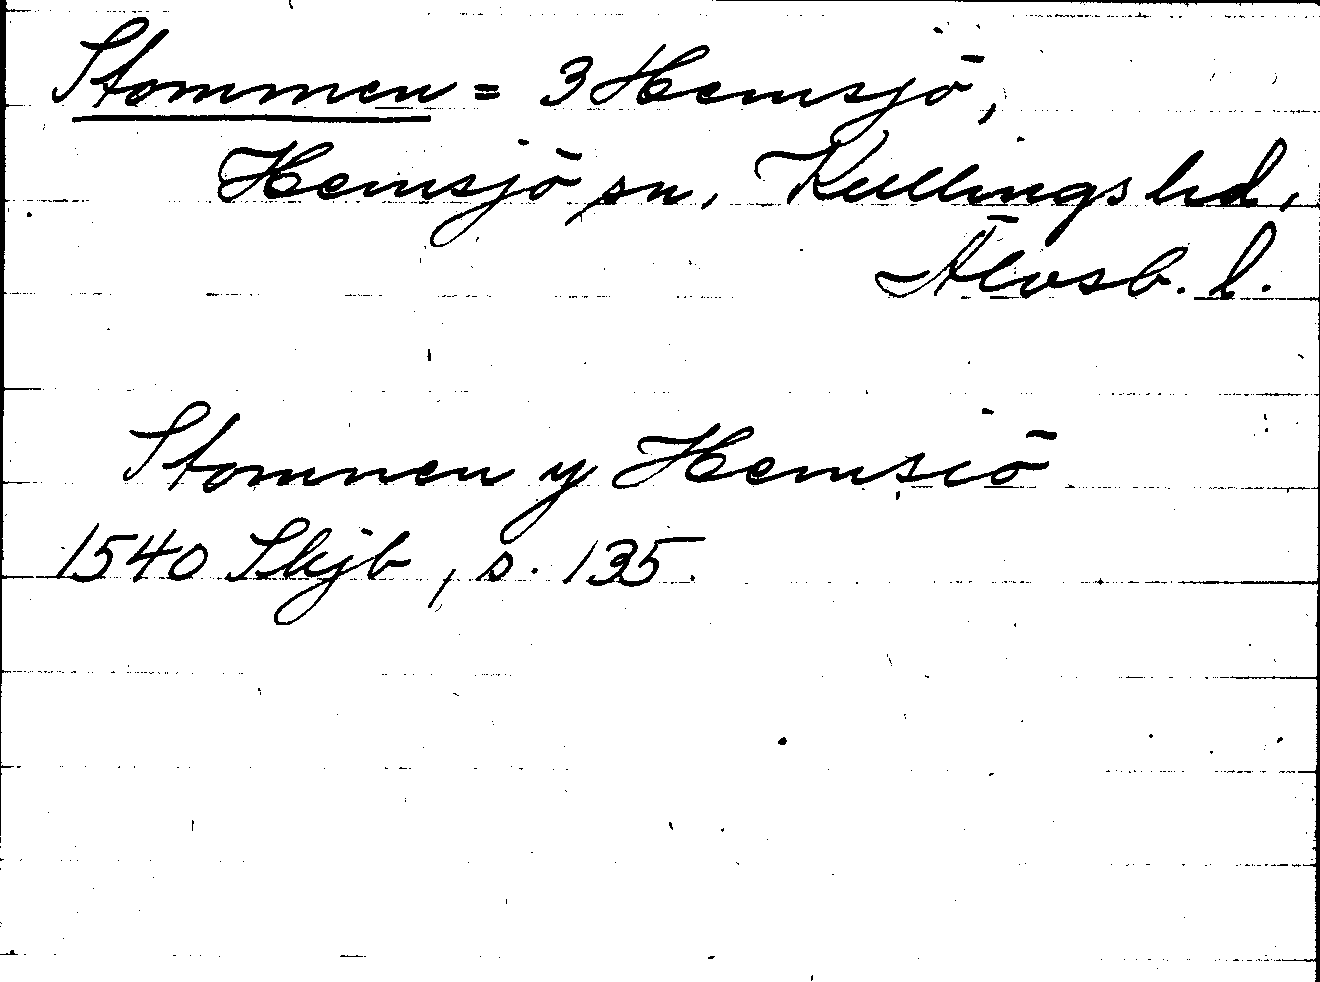 Stommen = 3 Hemsjö,
Hemsjö sn, Kullings hd,
Älvsb. l.
Stomnen y Hemsiö
1540 Skjb, s. 135.